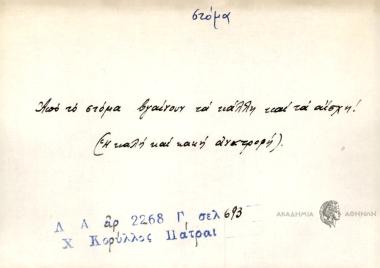 στόμα
Από τό στόμα βγαίνουν τά κάλλη καί τά αίσχη!
(Η καλή καί κακή ἀνατροφή).
Λ Α ἀρ 2268 Γ σελ 693
Χ Κορύλλος Πάτραι
ΑΚΑΔΗΜΙΑ ΑΘΗΝΩΝ